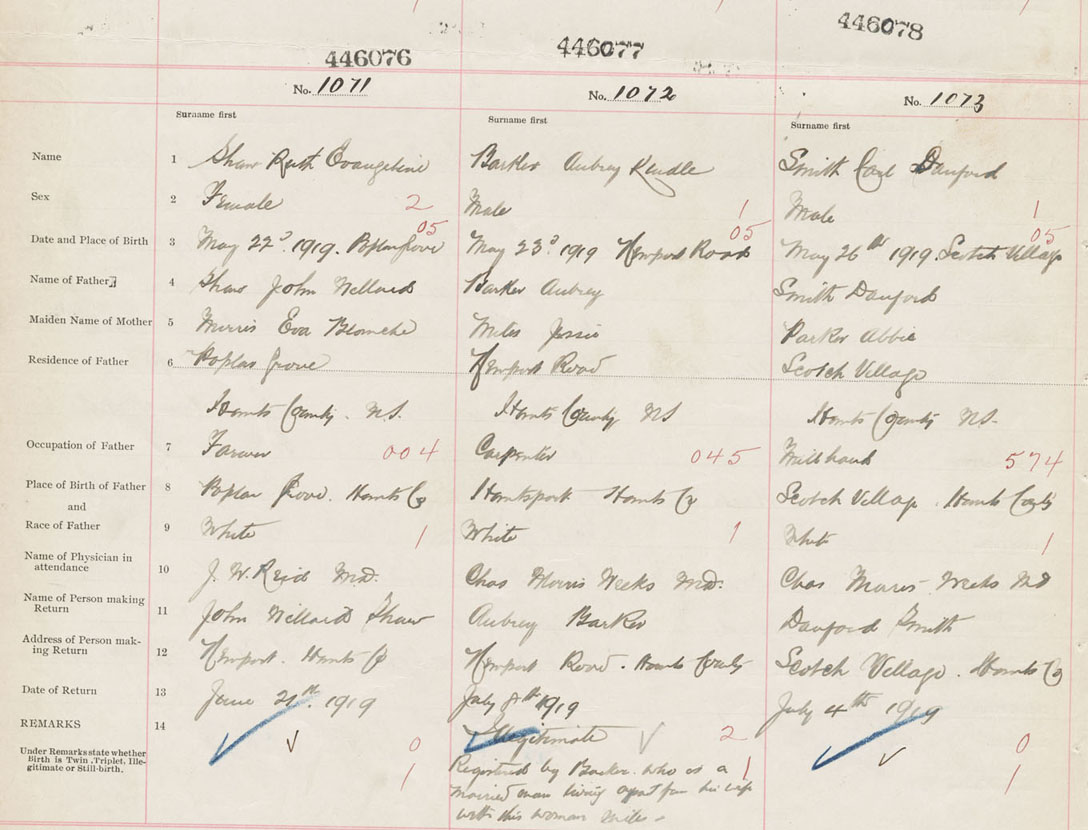 446076 446077 446078
No. 1071 No. 1072 No. 1073
Surname first Surname first Surname first
Name 1 Shaw Ruth Evangeline Barker Aubrey Kendle Smith Carl Danford
Sex 2 Female 2 Male 1 Male 1
05 05 05
Date and Place of Birth 3 May 22d. 1919. Poplar Grove May 23d. 1919 Newport Road May 26th 1919. Scotch Village
Name of Father 4 Shaw John Willard Barker Aubrey Smith Danford
Maiden Name of Mother 5 Morris Eva Blanche Miles Jessie Parker Abbie
Residence of Father 6 Poplar Grove Newport Road Scotch Village
Hants County. N.S. Hants County NS Hants County NS.
Occupation of Father 7 Farmer 004 Carpenter 045 Millhand 574
Place of Birth of Father 8 Poplar Grove. Hants Co Hantsport Hants Co Scotch Village. Hants County
and
Race of Father 9 White 1 White 1 White 1
Name of Physician in
attendance 10 J. W. Reid MD. Chas Morris Weeks MD. Chas Morris Weeks MD
Name of Person making
Return 11 John Willard Shaw Aubrey Barker Danford Smith
Address of Person mak-
ing Return 12 Newport. Hants Co Newport Road. Hants County Scotch Village. Hants Co
Date of Return 13 June 21th. 1919 July 8th 1919 July 4th 1919
REMARKS 14 Illegitimate 2
Under Remarks state whether
Birth is Twin, Triplet, Ille-
gitimate or Still-birth.
0 0
1 Registered by Barker. who is a 1 1
married man living apart from his wife
with this woman Miles -